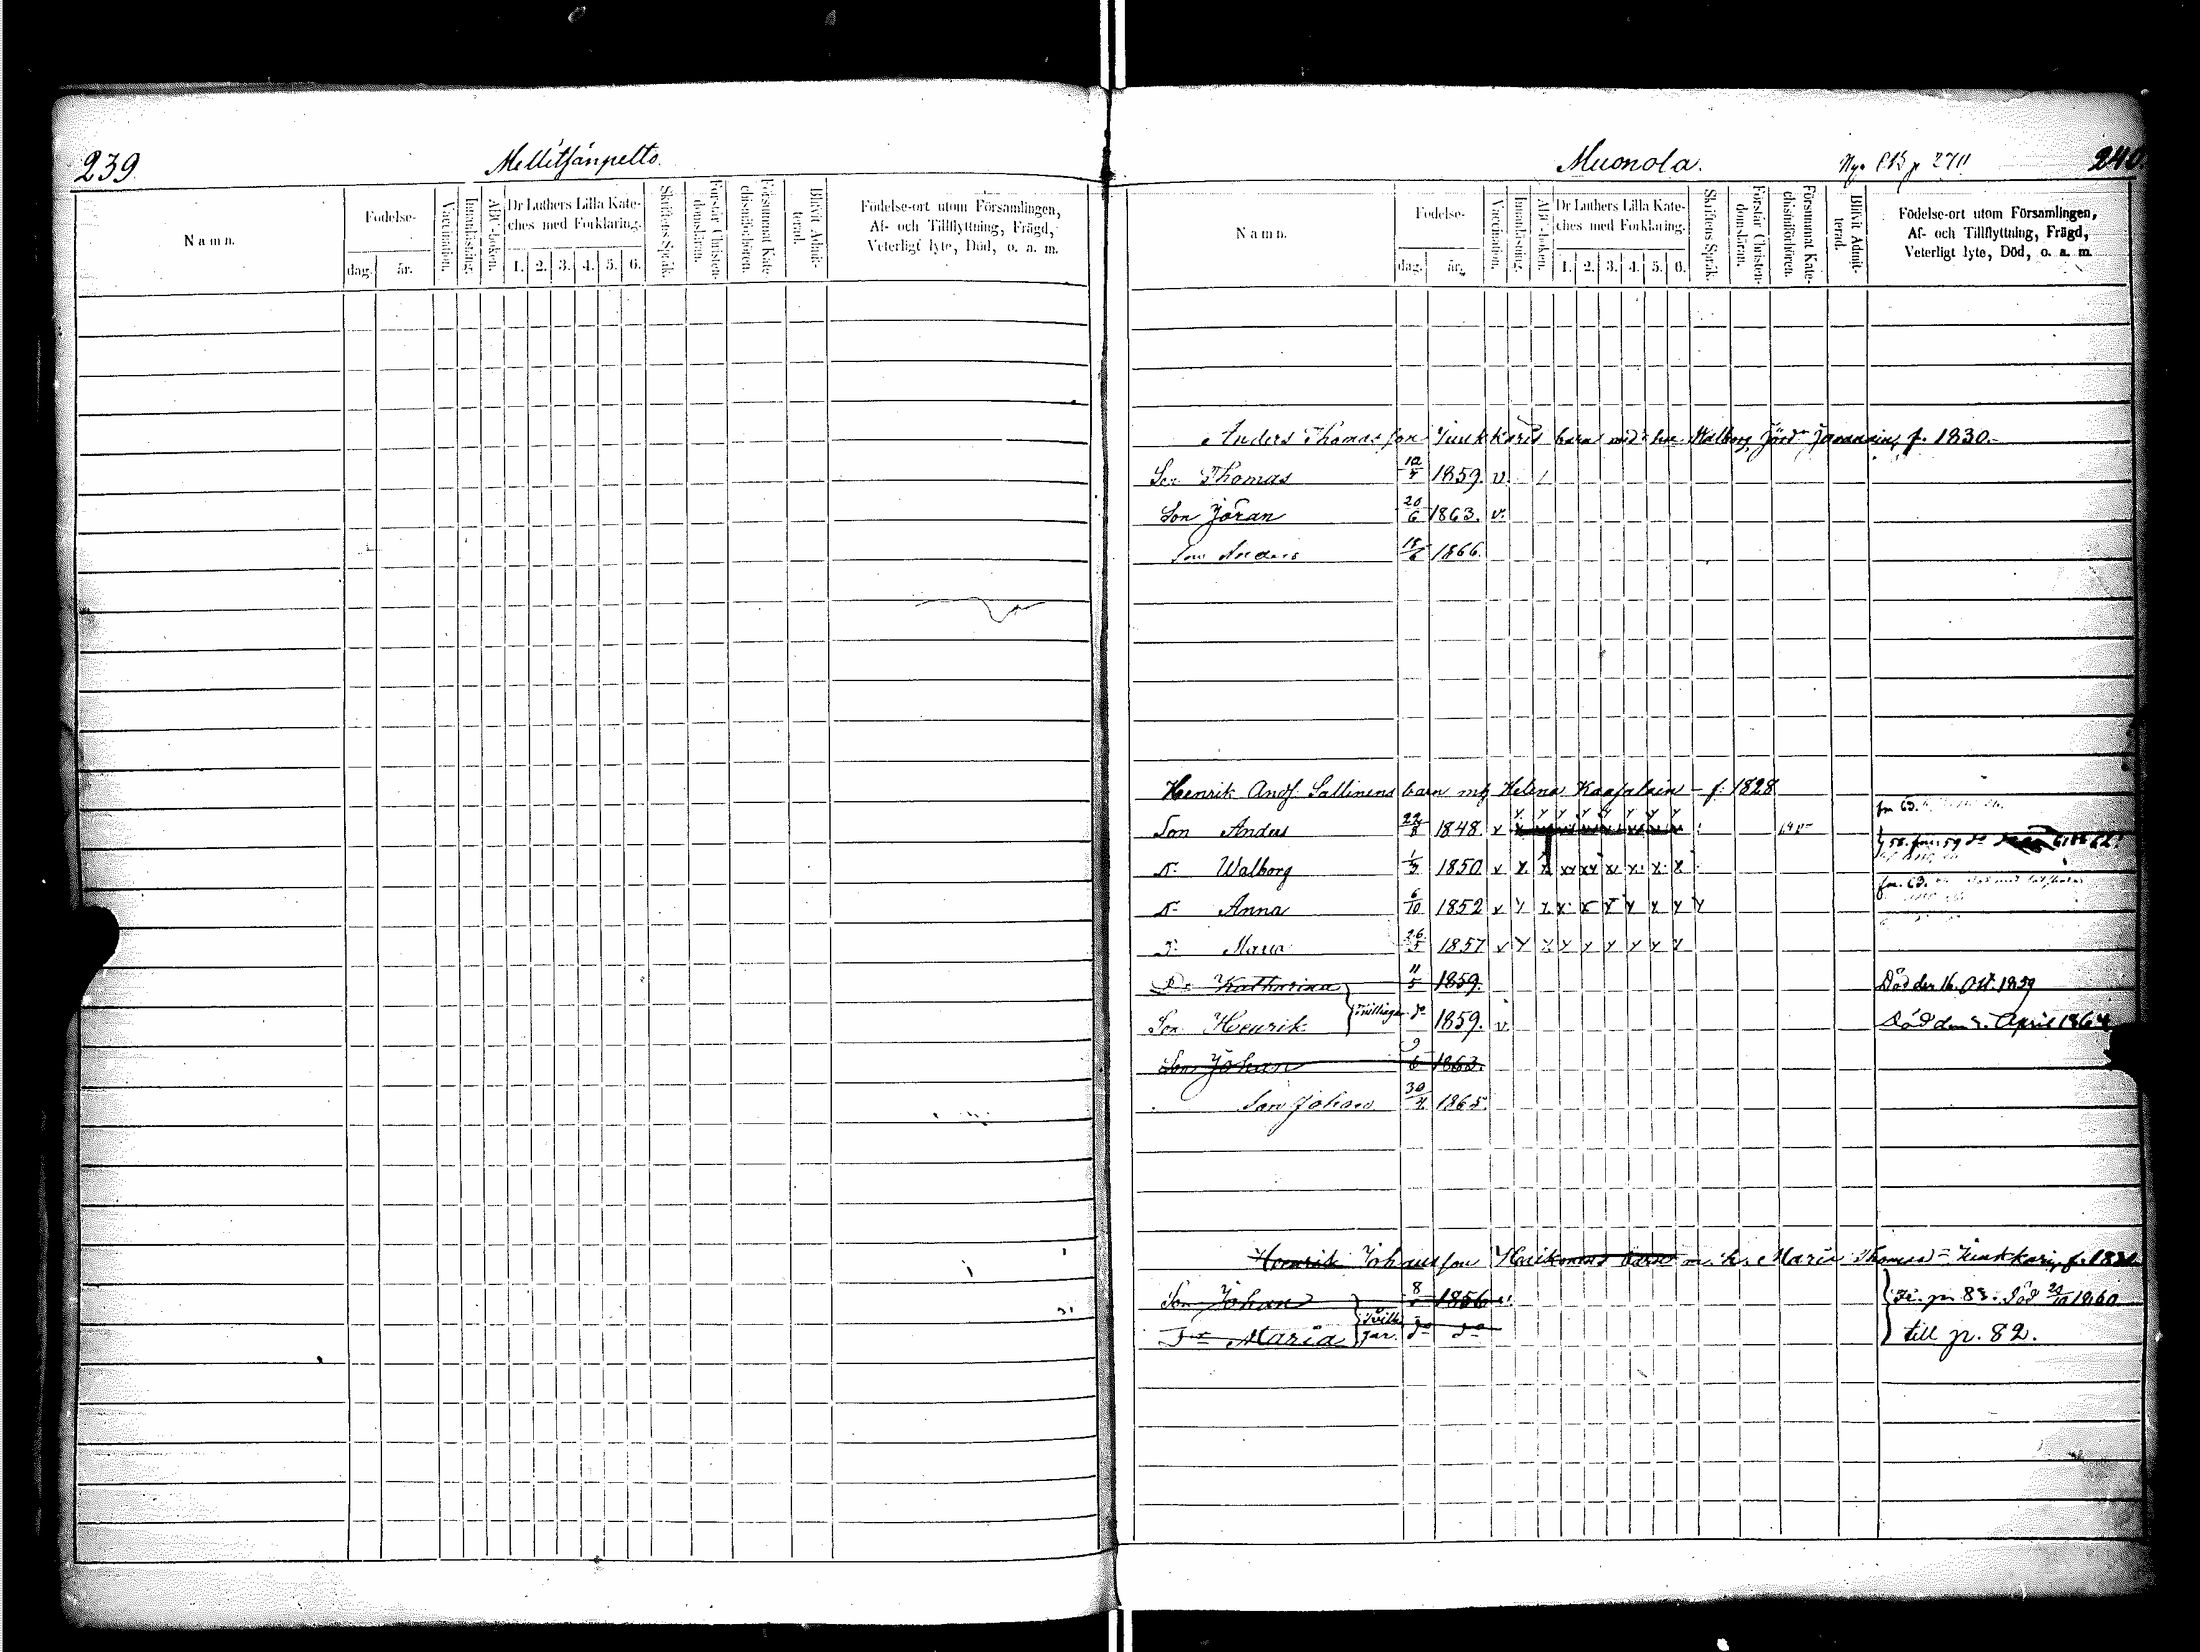 239 Mellitsänpelto.
Namn.
Födelse-
dag. år.
Vaccination.
Innanläsning.
ABC-boken.
Dr Luthers Lilla Kate-
ches med Förklaring.
1. 2. 3. 4. 5. 6.
Skriftens Språk.
Förstår Christen-
domsläran.
Försummat Kate-
chismiförhören.
Blifvit Admit-
terad.
Födelse-ort utom Församlingen,
Af- och Tillflyttning, Frägd,
Veterligt lyte, Död, o. a. m.
Muonola. 240
Namn.
Födelse-
dag. år.
Vaccination.
Innanläsning.
ABC-boken.
Dr Luthers Lilla Kate-
ches med Förklaring.
1. 2. 3. 4. 5. 6.
Skriftens Språk.
Förstår Christen-
domsläran.
Försummat Kate-
chismiförhören.
Blifvit Admit-
terad.
Födelse-ort utom Församlingen,
Af- och Tillflyttning, Frägd,
Veterligt lyte, Död, o. a. m.
Anders Thomasson barn med Walborg f. 1830.
Son Thomas 1859. v.
Son Jöran 20/6 1863. v.
Son Anders 1866.
Henrik Andf. Sallinens barn Helena f. 1828
Son Anders 22/8 1848. x
Walborg 1850 x x x x x x x x x
Anna 6/10 1852 x x x x x x x x x x
Maria 26/5 1857 x x x x x x x x x
Katharina 11/5 1859. Död den 16. Okt. 1859
Son Henrik tvillingar do 1859. v. Död den April 1864
Son Johan 9/6 1863.
Son Johan 30/4 1865.
Henrik Johansson barn Maria Thomasd:
Son Johan 8 1856 p. 83. Död 1860
Maria do do till p. 82.